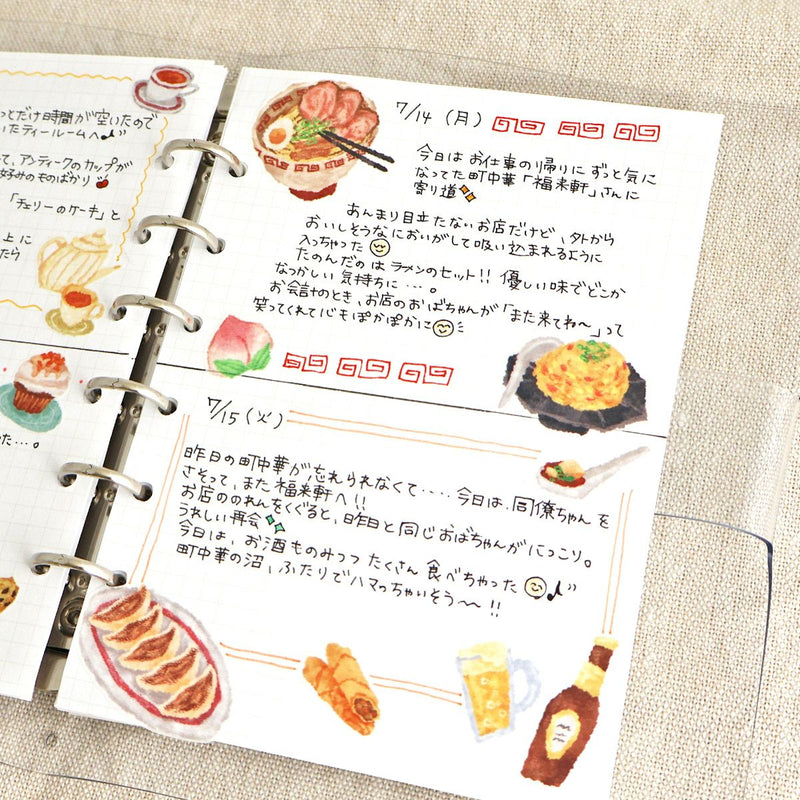 っとだけ時間が空いたので
いたティールームへ♪
て、アンティークのカップが
好みのものばかり
「チェリーのケーキ」と
上に
たら
た…。
7/14（月）
今日は お仕事の帰りに ずっと気に
なってた町中華「福来軒」さんに
寄り道
あんまり目立たないお店だけど、外から
おいしそうなにおいがして吸い込まれるように
入っちゃった
たのんだのはラーメンのセット!! 優しい味でどこか
なつかしい 気持ちに…。
お会計のとき、お店のおばちゃんが「また来てね〜」って
笑ってくれて心もぽかぽかに
7/15（火）
昨日の町中華が忘れられなくて‥‥今日は、同僚ちゃんを
さそって、また福来軒へ!!
お店ののれんをくぐると、昨日と同じおばちゃんがにっこり。
うれしい再会
今日は、お酒ものみつつ たくさん 食べちゃった♪
町中華の沼、ふたりでハマっちゃいそう〜〜!!